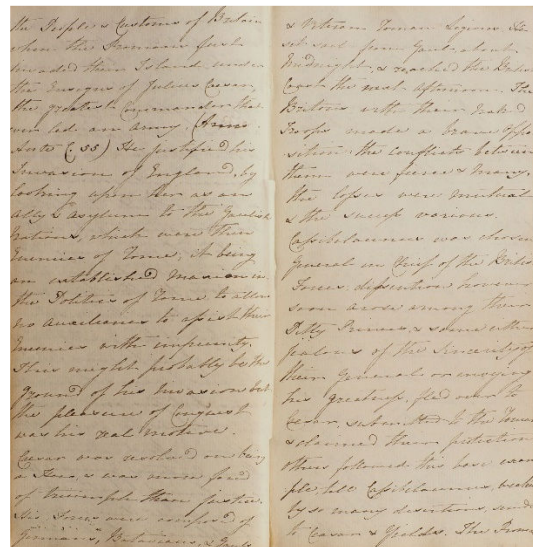 the People & Customs of Britain
when the Romans first
invaded their Island under
the Ensigns of Julius Caesar,
the greatest Commander that
ever led an Army. (Anno
Ante C. 55) He justified his
Invasion of England, by
looking upon her as an
Ally & Asylum to the Gaulish
Nations, which were then
Enemies of Rome; it being
an established Maxim in
the Politics of Rome to allow
no Auxiliaries to assist their
Enemies with impunity.
This might probably be the
ground of his Invasion but
the pleasure of Conquest
was his real motive.
Caesar was resolved on being
a Hero, & was more fond
of triumph than justice.
His were composed of
Germans, Batavians, & Gauls
& Veteran Roman Legions. He
set sail from Gaul, about
Midnight, & reached the British
Coast the next afternoon. The
Britons with their Naked
Troops made a brave oppo
sition the conflicts between
them were fierce & many,
the losses were mutual
& the success various.
Cassibelaunus was chosen
General in Chief of the British
Forces; dissention however
soon arose among their
Petty Princes, & some either
jealous of the Sincerity of
their General or envying
his greatness, fled over to
Cesar, submitted to the Romans
& claimed their protection
others followed this base exam
ple, till Cassibelaunus,
by so many desertions, sends
to Caesar & Yields. The